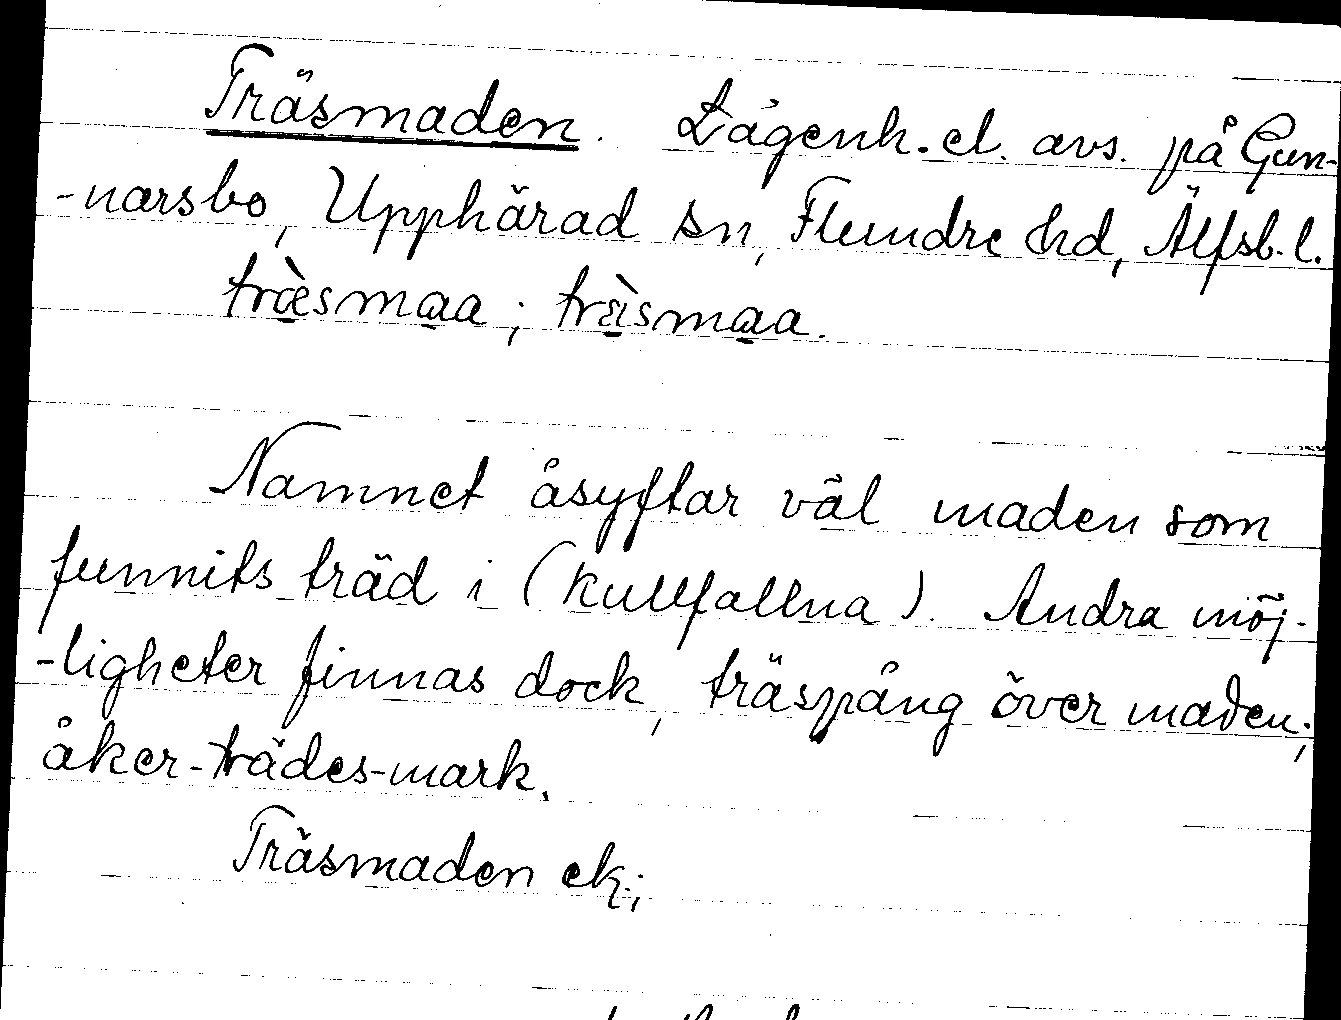 Träsmaden. Lägenh. el. avs. på Gun-
-narsbo, Upphärad sn, Flundre hd, Älfsb. l.
træ̀smaa; trä̀smaa.
Namnet åsyftar väl maden som
funnits träd i (kullfallna). Andra möj-
-ligheter finnas dock, träspång över maden;
åker-trädes-mark.
Träsmaden ek.;